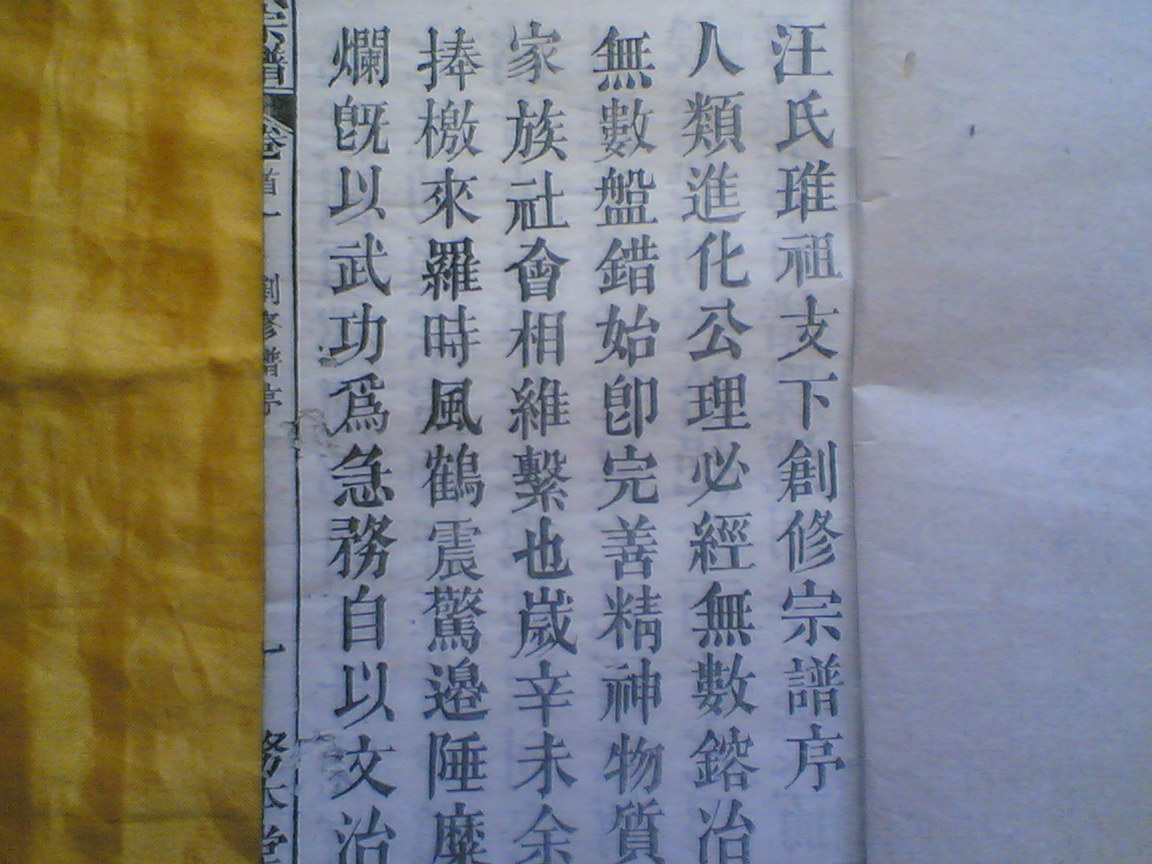 汪氏琟祖支下創修宗譜序
人類進化公理必經無數鎔冶
無數盤錯始卽完善精神物質
家族社會相維繫也歲辛未余
捧檄來羅時風鶴震驚邊陲糜
爛旣以武功爲急務自以文治
宗譜 卷首一 創修譜序 一 務本堂